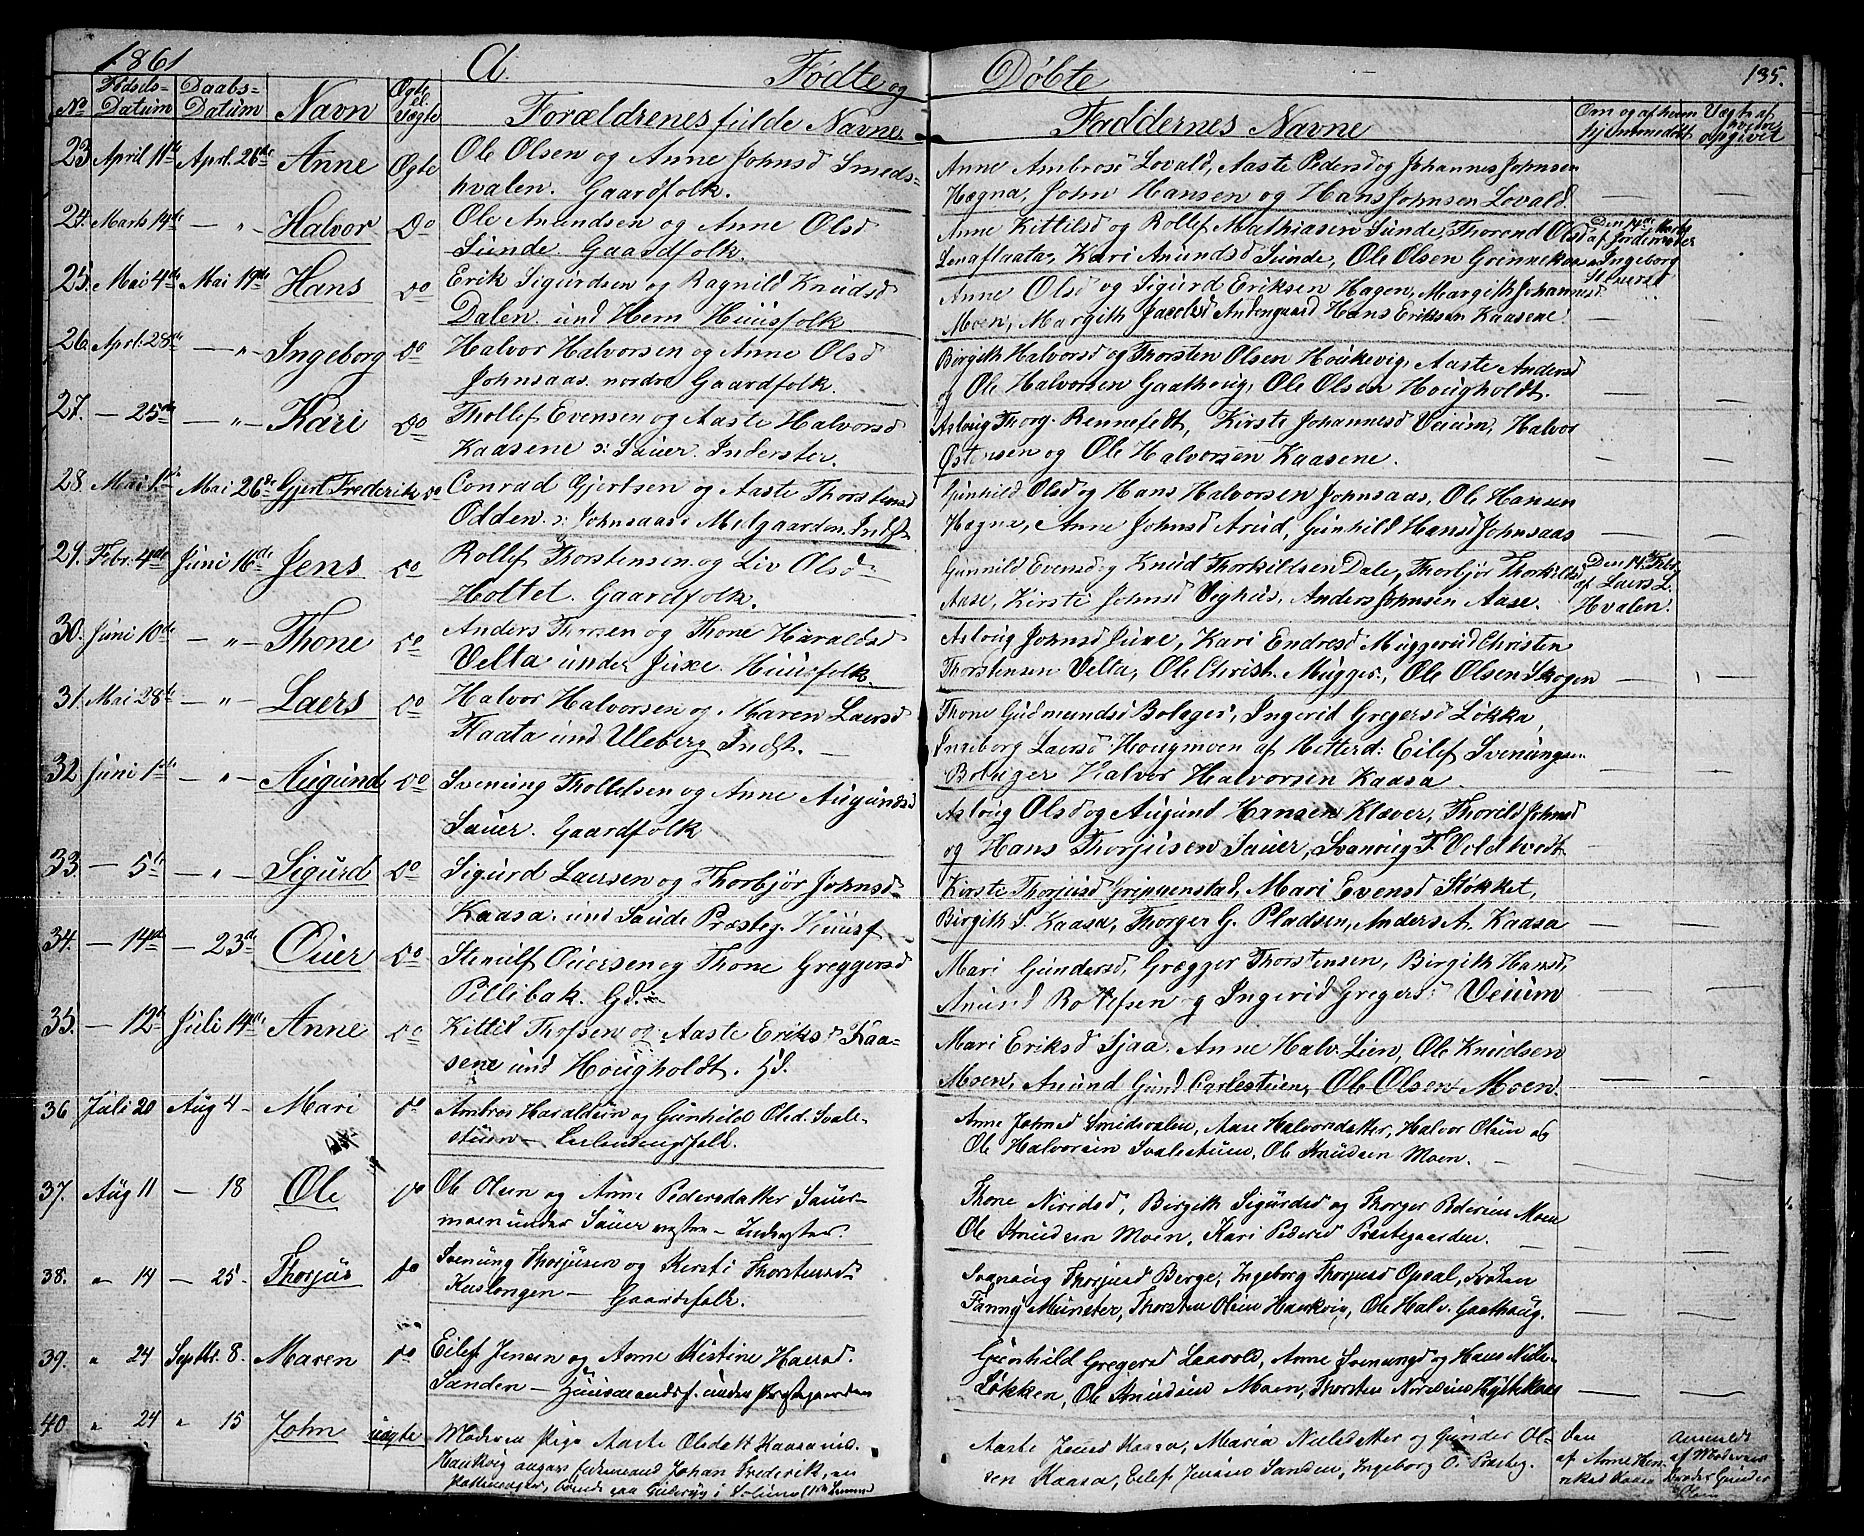 1861 A. Fødte og Døbte 135.
No Fødsels-Datum Daabs-Datum Navn Ægte el. Uægte Forældrenes fulde Navne Faddernes Navne Om og af hvem hjemmedøbt Vægt af opgiver
23 April 11te April 28de Anne Ægte Ole Olsen og Anne Johnsd Smeds-
hvalen. Gaardfolk.
Anne Ambrosd Lovald, Aaste Pedersd og Johannes Johnsen
Hægna, John Hansen og Hans Johnsen Lovald. — —
24. Marts 14de — " — Halvor Do Ole Amundsen og Anne Olsd
Sunde. Gaardfolk.
Anne Kittilsd og Rollef Mathiasen Sunde, Thorand Olsd
Lonaflaata, Kari Anundsd Sunde, Ole Olsen Grinnekaas
Den 14de Marts
af Jordemoder
Ingeborg
25. Mai 4de Mai 19de Hans do Erik Sigurdsen og Ragnild Knudsd
Dalen und Hem Huusfolk
Anne Olsd og Sigurd Eriksen Hagen, Margith Johannesd
Moen, Margith Jacobsd Andengaard Hans Eriksen Kaasene. — —
26. Apr. 28de — " — Ingeborg do Halvor Halvorsen og Anne Olsd
Johnsaas nordre Gaardfolk.
Birgith Halvorsd og Thorsten Olsen Houkevig, Aaste Andersd
og Ole Halvorsen Gaathoug, Ole Olsen Hougholdt. — —
27. — 25de — " — Kari do Thollef Evensen og Aaste Halvorsd
Kaasene s: Sauer. Inderster.
Asloug Thorg. Rennefedt, Kirste Johannesd Veium, Halvor
Østensen og Ole Halvorsen Kaasene. — —
28. Mai 1ste Mai 26de Gjert Frederik do Conrad Gjertsen og Aaste Thorstensd
Odden s: Johnsaas Melgaarden. Indst
Gunhild Olsd og Hans Halvorsen Johnsaas, Ole Hansen
Hægna, Anne Johnsd Aarud, Gunhild Hansd Johnsaas — —
29. Febr. 4de Juni 16de Jens do Rollef Thorstensen og Liv Olsd
Holtet. Gaardfolk.
Gunnild Evensd og Knud Thorkildsen Dale, Thorbjør Thorkildsd
Aase, Kirsti Johnsd Veghus, Anders Johnsen Aase.
Den 14. Febr
af Laers L.
Hvalen. —
30. Juni 10de — " — Thone do Anders Thorsen og Thone Haraldsd
Velta under Juxe. Huusfolk.
Asloug Johnsd Juxe, Kari Endresd Muggerud Christen
Thorstensen Velta, Ole Christ. Mugger., Ole Olsen Skogen — —
31. Mai 28de — " — Laers do Halvor Halvorsen og Maren Laersd
Flaata und Uleberg Indst. —
Thone Gudmundsd Bolager, Ingerid Gregersd Løkka,
Ingeborg Laersd Hougmoen af Hitterd: Eilef Svenungsen
Bolager Halvor Halvorsen Kaasa. — —
32 Juni 1ste — " — Augund do Svenung Thollefsen og Anne Augundsd
Sauer. Gaardfolk
Asloug Olsd og Augund Hansen Klæver, Thorild Johnsd
og Hans Thorjusen Sauer, Svanoug T. Voldtvedt — —
33. — 5te — " — Sigurd do Sigurd Laersen og Thorbjør Johnsd
Kaasa. und Saude Præsteg. Huusf
Kirste Thorjusd Gringenstad, Mari Evensd Støkket,
Birgith S. Kaasa, Thorger G. Pladsen, Anders A. Kaasa — —
34. — 14de — 23de Ouer do Stenulf Ouersen og Thone Greggersd
Pillibak. Gd.
Mari Gundersd, Grægger Thorstensen, Birgith Hansd,
Anund Rollefsen og Ingerid Gregersd Veium — —
35. — 12te Juli 14de Anne do Kittil Thofsen og Aaste Eriksd Kaa-
sene und Hougholdt. Hd.
Mari Eriksd Tjaa. Anne Halv. Lien, Ole Knudsen
Moen, Anund Gund. Carlestuen, Ole Olsen Moen. — —
36 Juli 20 Aug 4 — Mari do Ambros Haraldsen og Gunhild Olsd. Svale-
stuen —
Anne Johnsd Smidsvalen, Aase Halvorsdatter, Halvor Olsen og
Ole Halvorsen Svalestuen, Ole Knudsen Moen. — —
37. Aug 11 — 18 Ole do Ole Olsen og Anne Pedersdatter Sauer-
moen under Sauer vestre — Inderster.
Thone Niridsd, Birgith Sigurdsd og Thorger Pedersen Moen
Ole Knudsen Moen, Kari Pedersd Præstegaarden. — —
38. " 14 — 25. Thorjus do Svenung Thorjusen og Kirsti Thorstensd.
Kuslongen — Gaardefolk.
Svanoug Thorjusd Berge, Ingeborg Thorjusd Opsal, Frøken
Fanny Münster, Thorsten Olsen Haukvig, Ole Halv. Gaathaug. — —
39. " 24 Septbr. 8. Maren do Eilef Jensen og Anne Kistine Hansd.
Sanden — Huusmandsf. under Præstegaarden
Gunhild Gregersd Laavold, Anne Svenungsd og Hans Niels.
Løkken, Ole Knudsen Moen, Thorsten Niridsen — —
40 " 24 " 15 John uægte Moderen Pige Aaste Olsdatt Kaasa
Haukvig angav Johan Frederik, en
Aaste Jensd Kaasa, Maria Nielsdatter og Gunder Ol-
sen Kaasa, Eilef Jensen Sanden, Ingeborg O. Præsteg.
den
af Anne Hen-
riksd Kaasa
Anmeldt
af Moderens
Broder Gunder
Olsen